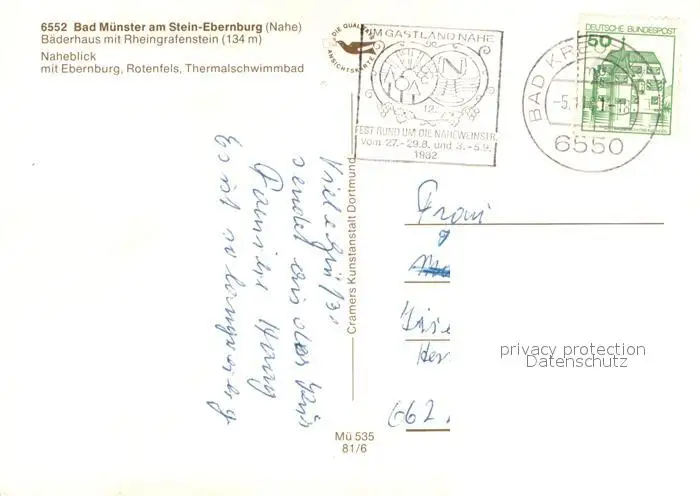 6552 Bad Münster am Stein-Ebernburg (Nahe)
Bäderhaus mit Rheingrafenstein (134 m)
Naheblick
mit Ebernburg, Rotenfels, Thermalschwimmbad
DIE QUALITÄTS
ANSICHTSKARTE
IM GASTLAND NAHE
N
12.
FEST RUND UM DIE NAHEWEINSTR.
vom 27.-29.8. und 3.-5.9.
1982
BAD KRE
-5.1
6550
DEUTSCHE BUNDESPOST
50
Viele Grüße
sendet aus der Kur
Familie
Es ist so langweilig
Cramers Kunstanstalt Dortmund
Frau
662
privacy protection
Datenschutz
Mü 535
81/6